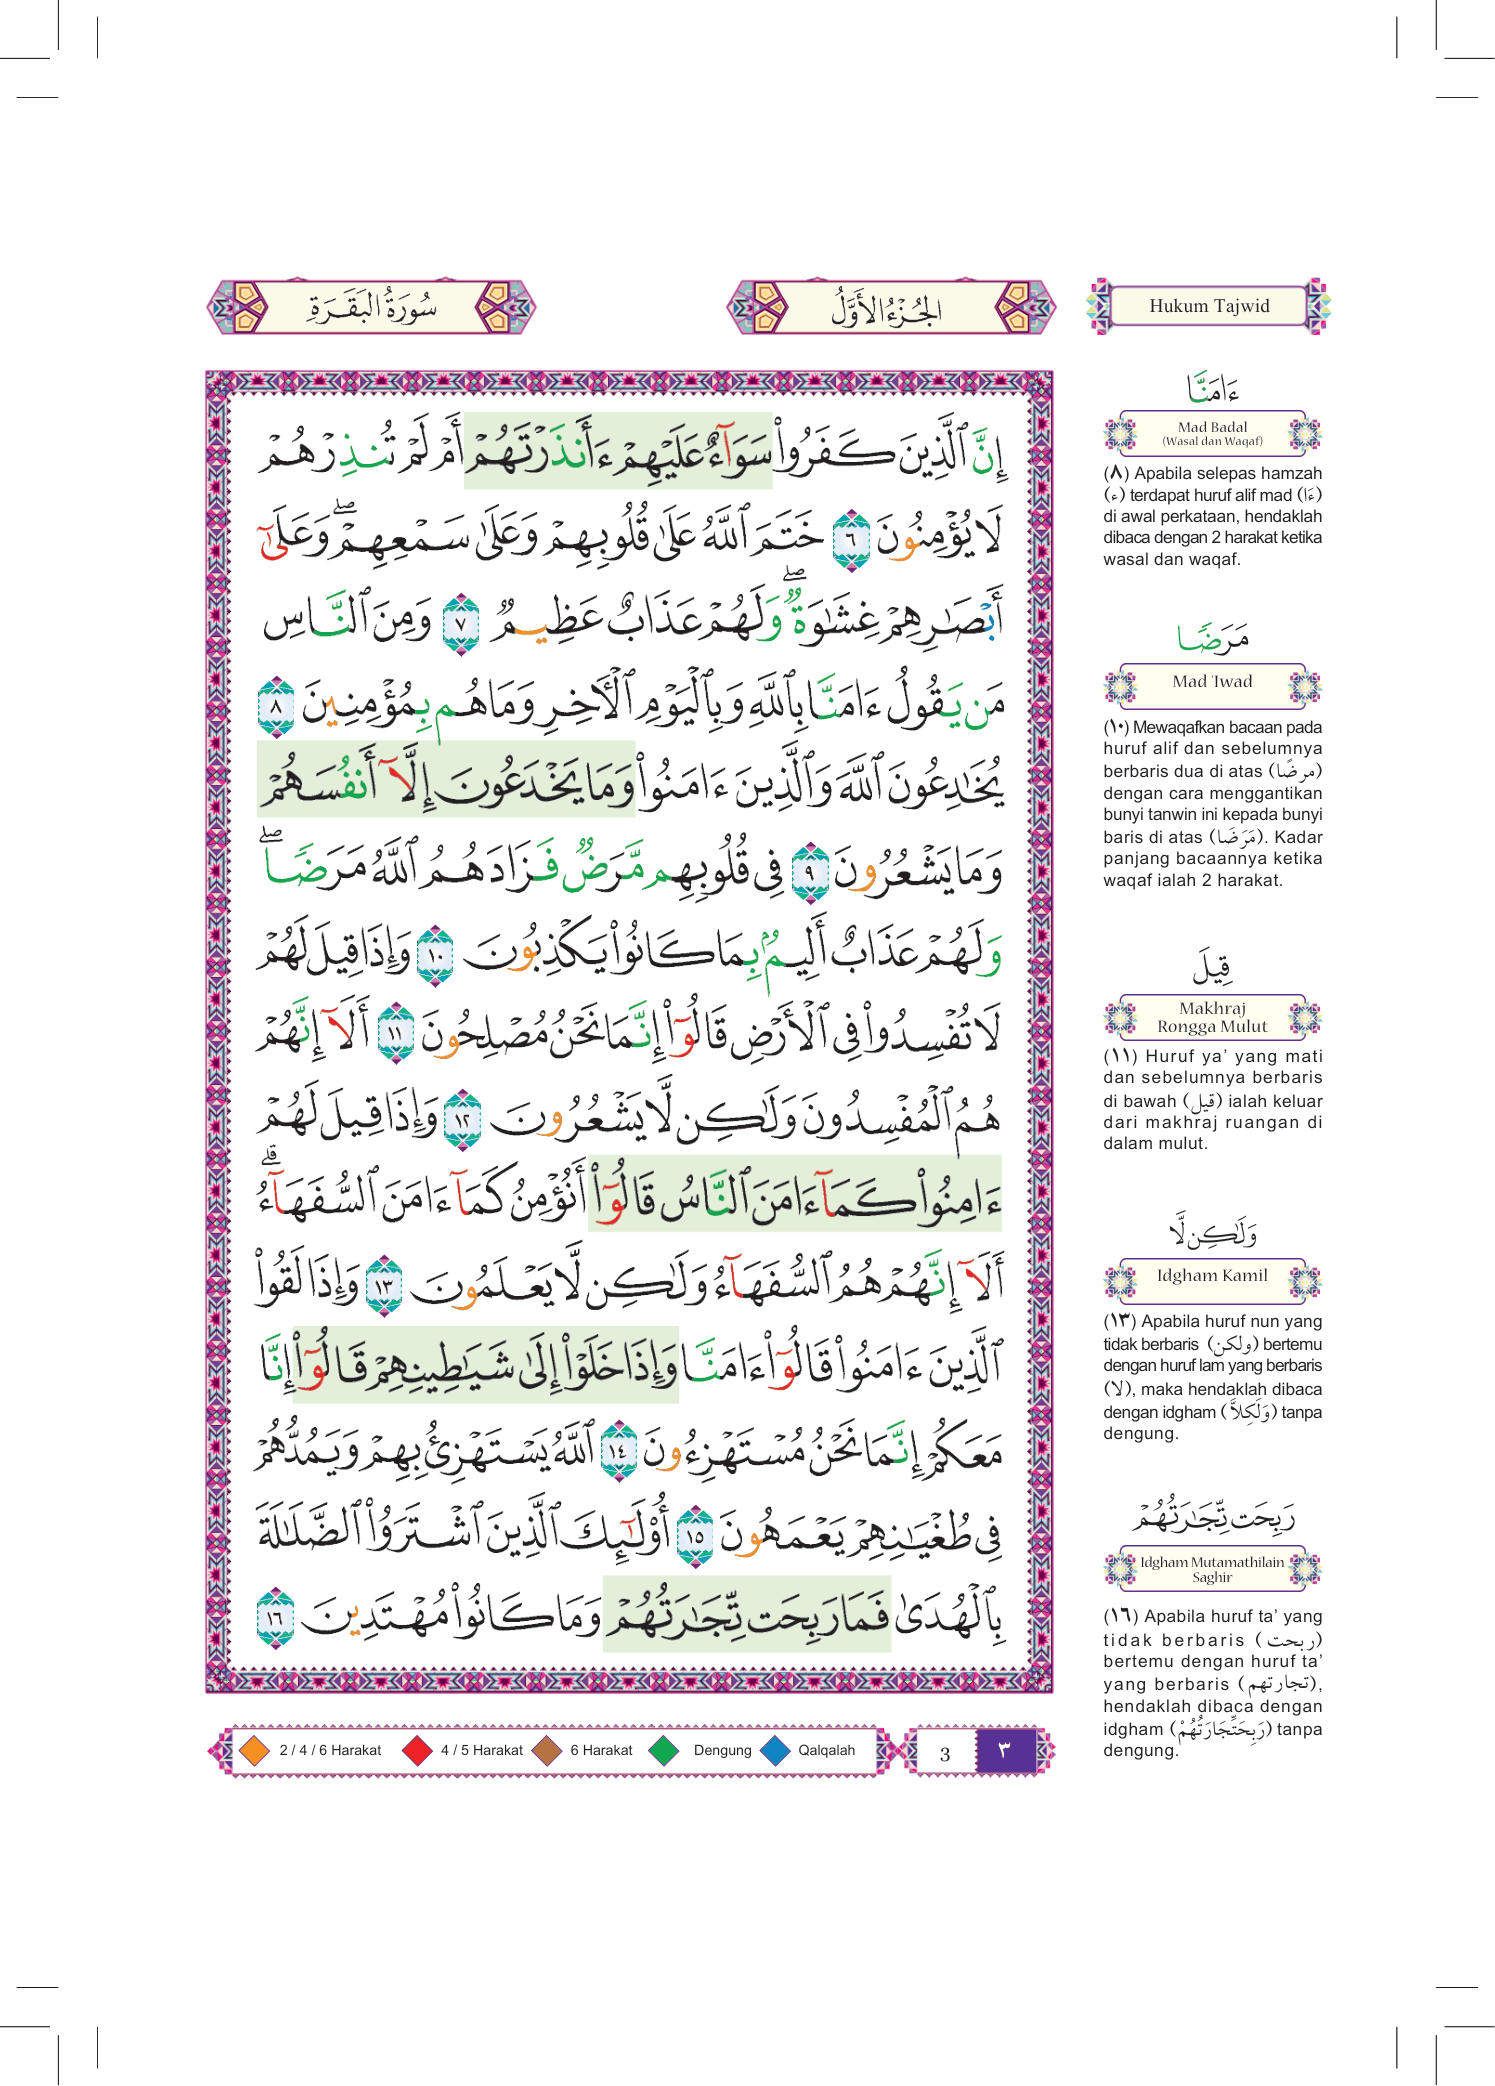 سُورَةُ الْبَقَرَةِ
الْجُزْءُ الْأَوَّلُ
Hukum Tajwid
إِنَّ ٱلَّذِينَ كَفَرُوا۟ سَوَآءٌ عَلَيْهِمْ ءَأَنذَرْتَهُمْ أَمْ لَمْ تُنذِرْهُمْ
لَا يُؤْمِنُونَ ٦ خَتَمَ ٱللَّهُ عَلَىٰ قُلُوبِهِمْ وَعَلَىٰ سَمْعِهِمْ ۖ وَعَلَىٰٓ
أَبْصَـٰرِهِمْ غِشَـٰوَةٌ ۖ وَلَهُمْ عَذَابٌ عَظِيمٌ ٧ وَمِنَ ٱلنَّاسِ
مَن يَقُولُ ءَامَنَّا بِٱللَّهِ وَبِٱلْيَوْمِ ٱلْـَٔاخِرِ وَمَا هُم بِمُؤْمِنِينَ ٨
يُخَـٰدِعُونَ ٱللَّهَ وَٱلَّذِينَ ءَامَنُوا۟ وَمَا يَخْدَعُونَ إِلَّآ أَنفُسَهُمْ
وَمَا يَشْعُرُونَ ٩ فِى قُلُوبِهِم مَّرَضٌ فَزَادَهُمُ ٱللَّهُ مَرَضًا ۖ
وَلَهُمْ عَذَابٌ أَلِيمٌۢ بِمَا كَانُوا۟ يَكْذِبُونَ ١٠ وَإِذَا قِيلَ لَهُمْ
لَا تُفْسِدُوا۟ فِى ٱلْأَرْضِ قَالُوٓا۟ إِنَّمَا نَحْنُ مُصْلِحُونَ ١١ أَلَآ إِنَّهُمْ
هُمُ ٱلْمُفْسِدُونَ وَلَـٰكِن لَّا يَشْعُرُونَ ١٢ وَإِذَا قِيلَ لَهُمْ
ءَامِنُوا۟ كَمَآ ءَامَنَ ٱلنَّاسُ قَالُوٓا۟ أَنُؤْمِنُ كَمَآ ءَامَنَ ٱلسُّفَهَآءُ ۗ
أَلَآ إِنَّهُمْ هُمُ ٱلسُّفَهَآءُ وَلَـٰكِن لَّا يَعْلَمُونَ ١٣ وَإِذَا لَقُوا۟
ٱلَّذِينَ ءَامَنُوا۟ قَالُوٓا۟ ءَامَنَّا وَإِذَا خَلَوْا۟ إِلَىٰ شَيَـٰطِينِهِمْ قَالُوٓا۟ إِنَّا
مَعَكُمْ إِنَّمَا نَحْنُ مُسْتَهْزِءُونَ ١٤ ٱللَّهُ يَسْتَهْزِئُ بِهِمْ وَيَمُدُّهُمْ
فِى طُغْيَـٰنِهِمْ يَعْمَهُونَ ١٥ أُو۟لَـٰٓئِكَ ٱلَّذِينَ ٱشْتَرَوُا۟ ٱلضَّلَـٰلَةَ
بِٱلْهُدَىٰ فَمَا رَبِحَت تِّجَـٰرَتُهُمْ وَمَا كَانُوا۟ مُهْتَدِينَ ١٦
2 / 4 / 6 Harakat 4 / 5 Harakat 6 Harakat Dengung Qalqalah
3 ٣
ءَامَنَّا
Mad Badal
(Wasal dan Waqaf)
(٨) Apabila selepas hamzah
(ء) terdapat huruf alif mad (ءَا)
di awal perkataan, hendaklah
dibaca dengan 2 harakat ketika
wasal dan waqaf.
مَرَضًا
Mad 'Iwad
(١٠) Mewaqafkan bacaan pada
huruf alif dan sebelumnya
berbaris dua di atas (مرضًا)
dengan cara menggantikan
bunyi tanwin ini kepada bunyi
baris di atas (مَرَضَا). Kadar
panjang bacaannya ketika
waqaf ialah 2 harakat.
قِيلَ
Makhraj
Rongga Mulut
(١١) Huruf ya’ yang mati
dan sebelumnya berbaris
di bawah (قيل) ialah keluar
dari makhraj ruangan di
dalam mulut.
وَلَـٰكِن لَّا
Idgham Kamil
(١٣) Apabila huruf nun yang
tidak berbaris (ولكن) bertemu
dengan huruf lam yang berbaris
(لا), maka hendaklah dibaca
dengan idgham (وَلَكِلاَّ) tanpa
dengung.
رَبِحَت تِّجَـٰرَتُهُمْ
Idgham Mutamathilain
Saghir
(١٦) Apabila huruf ta’ yang
tidak berbaris (ربحت)
bertemu dengan huruf ta’
yang berbaris (تجارتهم),
hendaklah dibaca dengan
idgham (رَبِحَتِّجَارَتُهُمْ) tanpa
dengung.